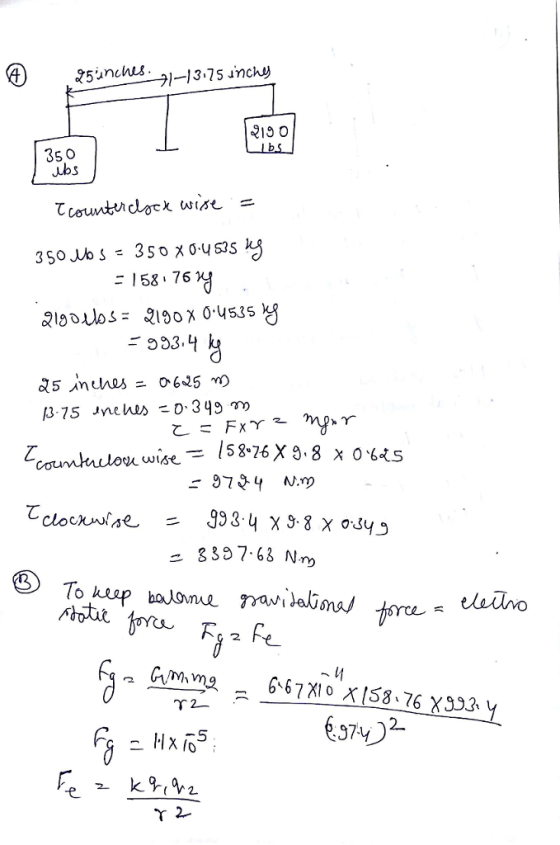 A
25 inches. 13.75 inches
350 lbs
2190 lbs
τ counterclock wise =
350 lbs = 350 X 0.4535 kg
= 158.76 kg
2190 lbs = 2190 X 0.4535 kg
= 993.4 kg
25 inches = 0.625 m
13.75 inches = 0.349 m
τ = F x r = mg x r
τ counterclock wise = 158.76 X 9.8 X 0.625
= 972.4 N.m
τ clockwise = 993.4 X 9.8 X 0.349
= 3397.63 Nm
B To keep balance gravitational force = electro
static force Fg = Fe
Fg = Gm₁m₂ / r2 = 6.67 X 10⁻¹¹ X 158.76 X 993.4 / (0.974)²
Fg = 1.1 X 10⁻⁵
Fe = k q₁ q₂ / r 2